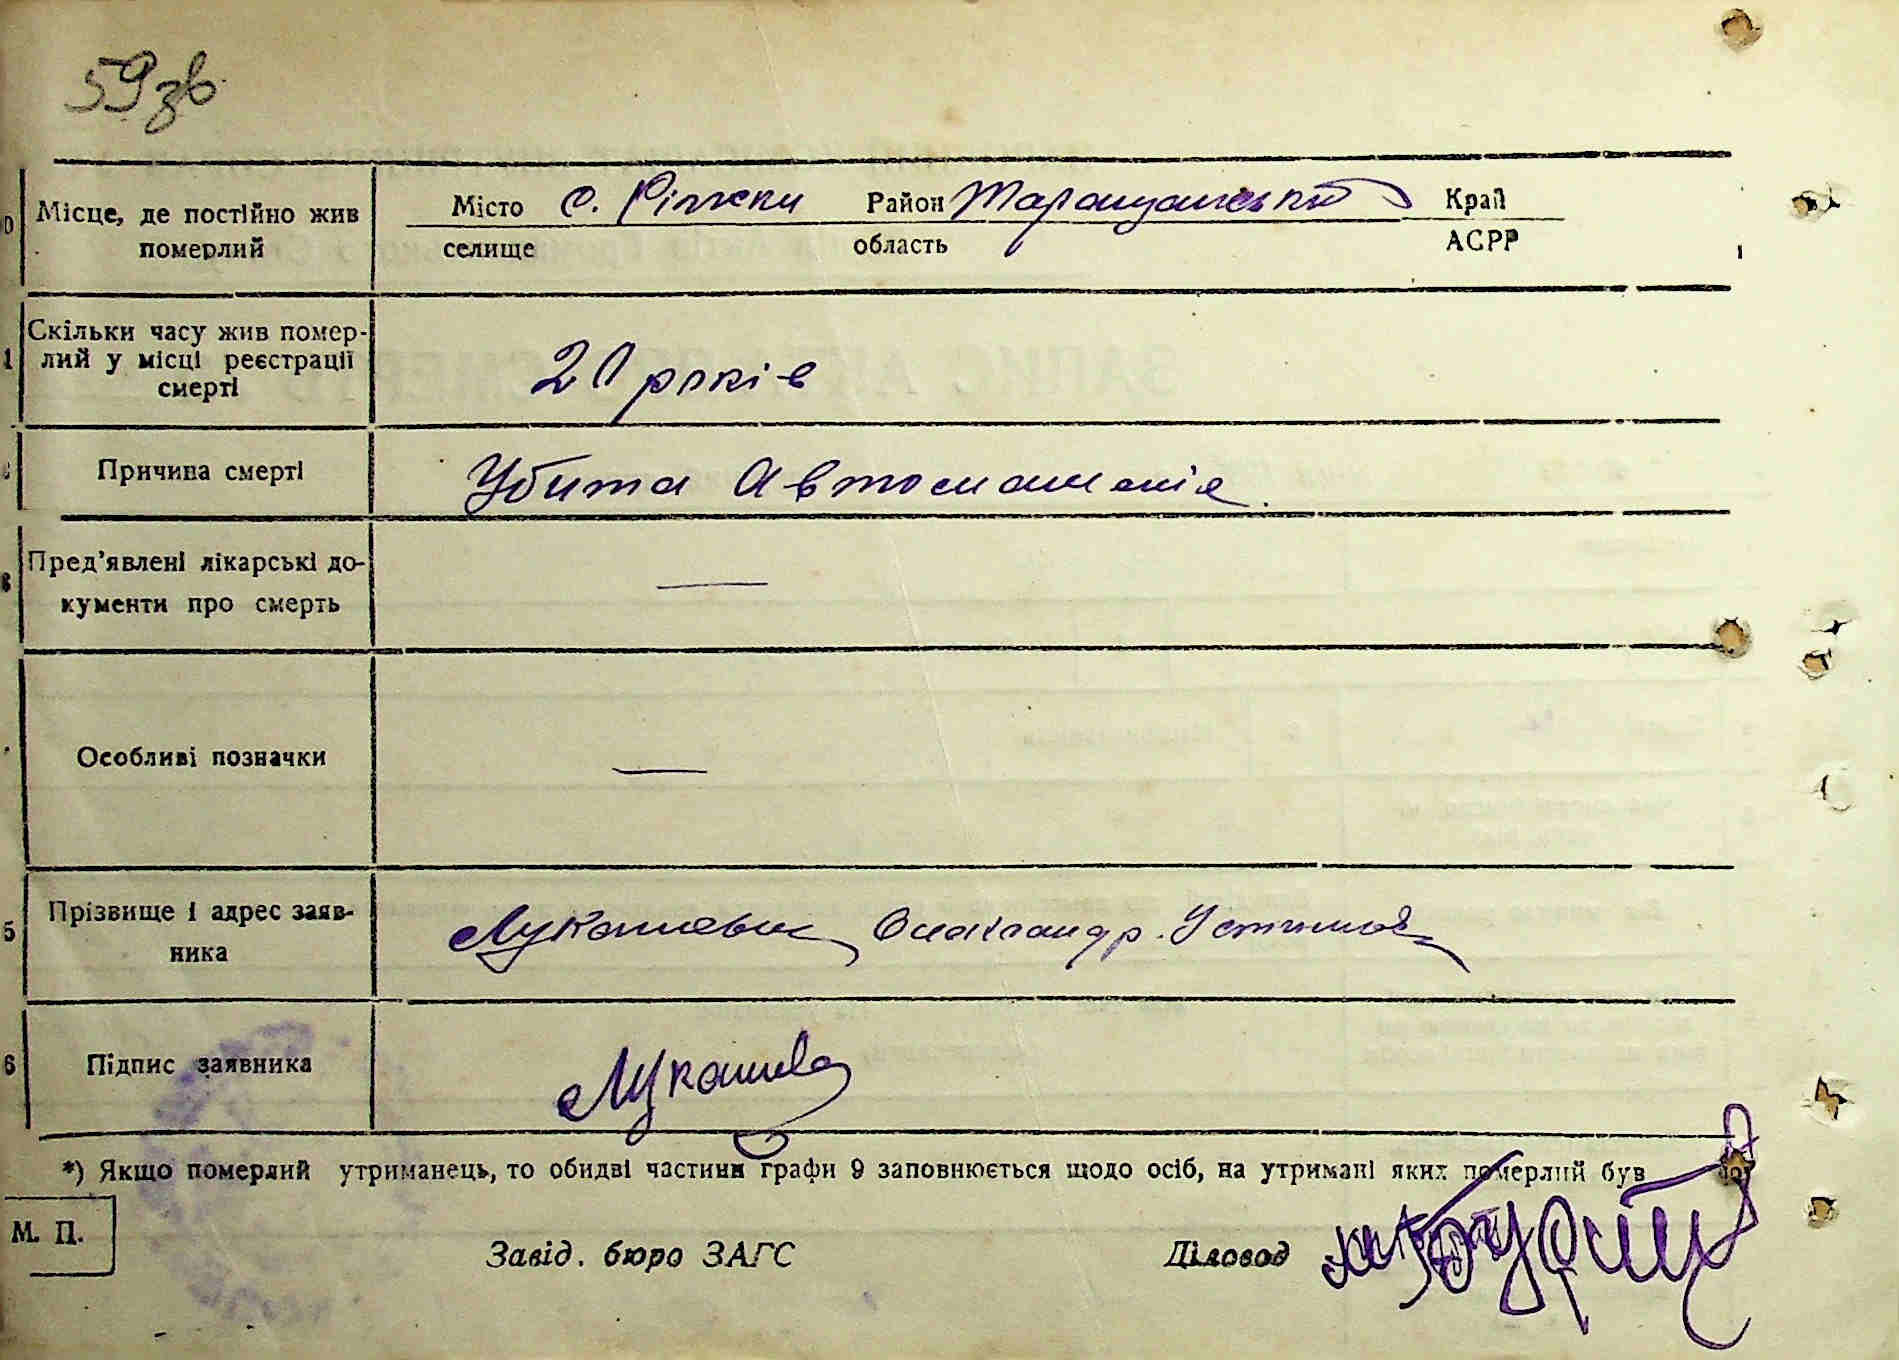 59зв.
Місце, де постійно жив
померлий
Місто с. Ріжки Район Таращанський Край
селище область АСРР
Скільки часу жив помер-
лий у місці реєстрації
смерті
20 років
Причина смерті
Убита Автомашиния.
Пред'явлені лікарські до-
кументи про смерть
—
Особливі позначки
—
5 Прізвище і адрес заяв-
ника
Лукашевич Олександр. Устимов
6 Підпис заявника
*) Якщо померлий утриманець, то обидві частини графи 9 заповнюється щодо осіб, на утримані яких померлий був
М. П.
Завід. бюро ЗАГС Діловод